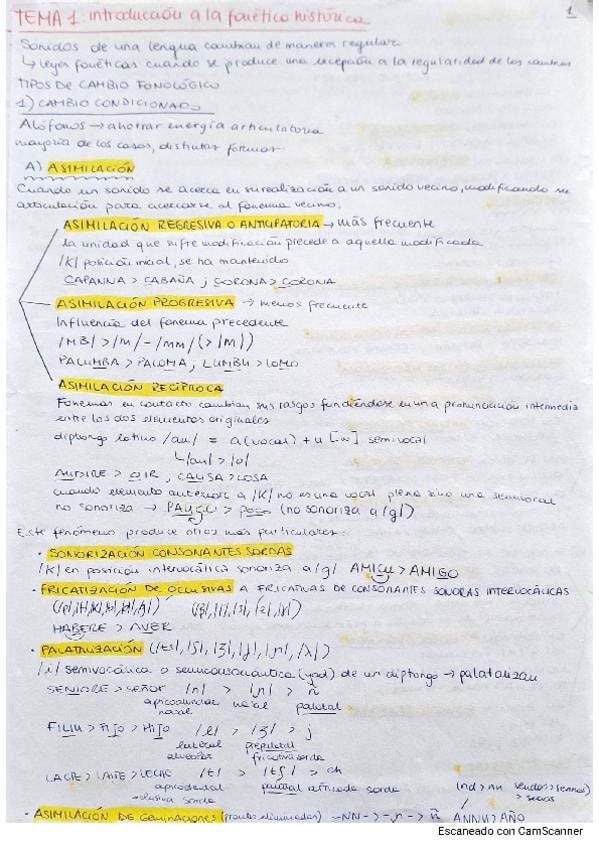 TEMA 1: introducción a la fonética histórica
1
Sonidos de una lengua cambian de manera regular
↳ leyes fonéticas cuando se produce una excepción a la regularidad de los cambios
TIPOS DE CAMBIO FONOLÓGICO
1) CAMBIO CONDICIONADO
Alófonos → ahorrar energía articulatoria
mayoría de los casos, distintas formas:
A) ASIMILACIÓN
Cuando un sonido se acerca en su realización a un sonido vecino, modificando su
articulación para acercarse al fonema vecino.
ASIMILACIÓN REGRESIVA O ANTICIPATORIA → más frecuente
la unidad que sufre modificación precede a aquella modificada
/K/ posición inicial, se ha mantenido
CAPANNA > CABAÑA ; CORONA > CORONA
ASIMILACIÓN PROGRESIVA → menos frecuente
Influencia del fonema precedente
/MB/ > /m/ - /mm/ (> /m/)
PALUMBA > PALOMA, LUMBU > LOMO
ASIMILACIÓN RECÍPROCA
Fonemas en contacto cambian sus rasgos fundiéndose en una pronunciación intermedia
entre los dos elementos originales
diptongo latino /au/ = a (vocal) + u [w] semivocal
↳ /au/ > /o/
AUDIRE > OIR, CAUSA > COSA
cuando elemento anterior a /K/ no es una vocal plena sino una semivocal
no sonoriza → PAUCU > poco (no sonoriza a /g/)
Este fenómeno produce otros más particulares:
· SONORIZACIÓN CONSONANTES SORDAS
/K/ en posición intervocálica sonoriza a /g/ AMICU > AMIGO
· FRICATIZACIÓN DE OCLUSIVAS A FRICATIVAS DE CONSONANTES SONORAS INTERVOCÁLICAS
HABERE > AVER
· PALATALIZACIÓN
/i/ semivocálica o semiconsonántica (yod) de un diptongo → palatalizan
SENIORE > SEÑOR /n/ > /ɲ/ > ñ
apicoalveolar nasal nasal palatal
FILIU > FIJO > HIJO /l/ > /ʒ/ > j
lateral alveolar prepalatal fricativa sorda
LACTE > LAITE > LECHE /t/ > /tʃ/ > ch
apicodental oclusiva sorda palatal africada sorda
· ASIMILACIÓN DE GEMINACIONES (pronto eliminadas) -NN- > -ɲ- > ñ ANNU > AÑO
Escaneado con CamScanner